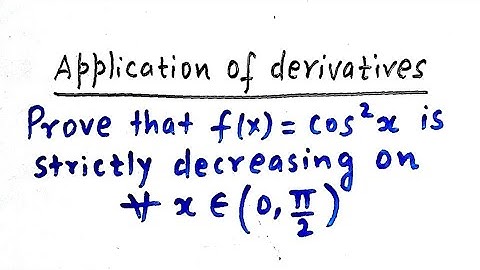 Application of derivatives
Prove that f(x) = cos²x is
strictly decreasing on
∀ x ∈ (0, π/2)